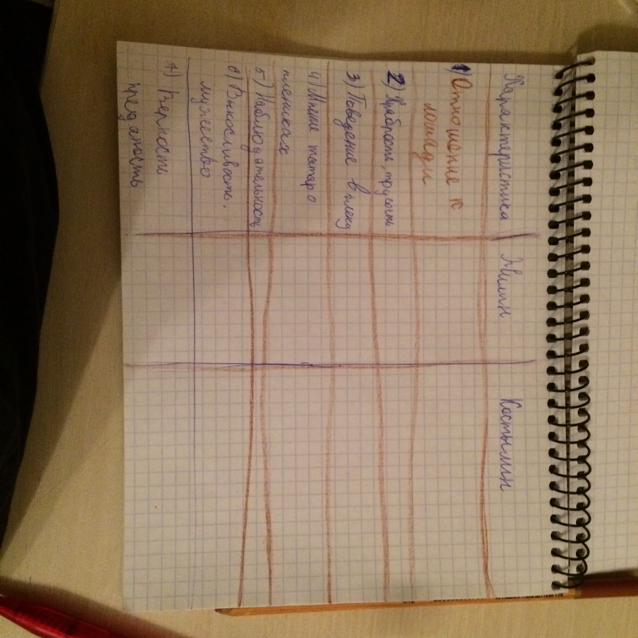 Характеристика Жилин Костылин
1) Отношение к
лошади
2) Храбрость, трусость
3) Поведение в плену
4) Мнение татар о
пленниках
5) Наблюдательность
6) Выносливость.
мужество
7) Верность
преданость